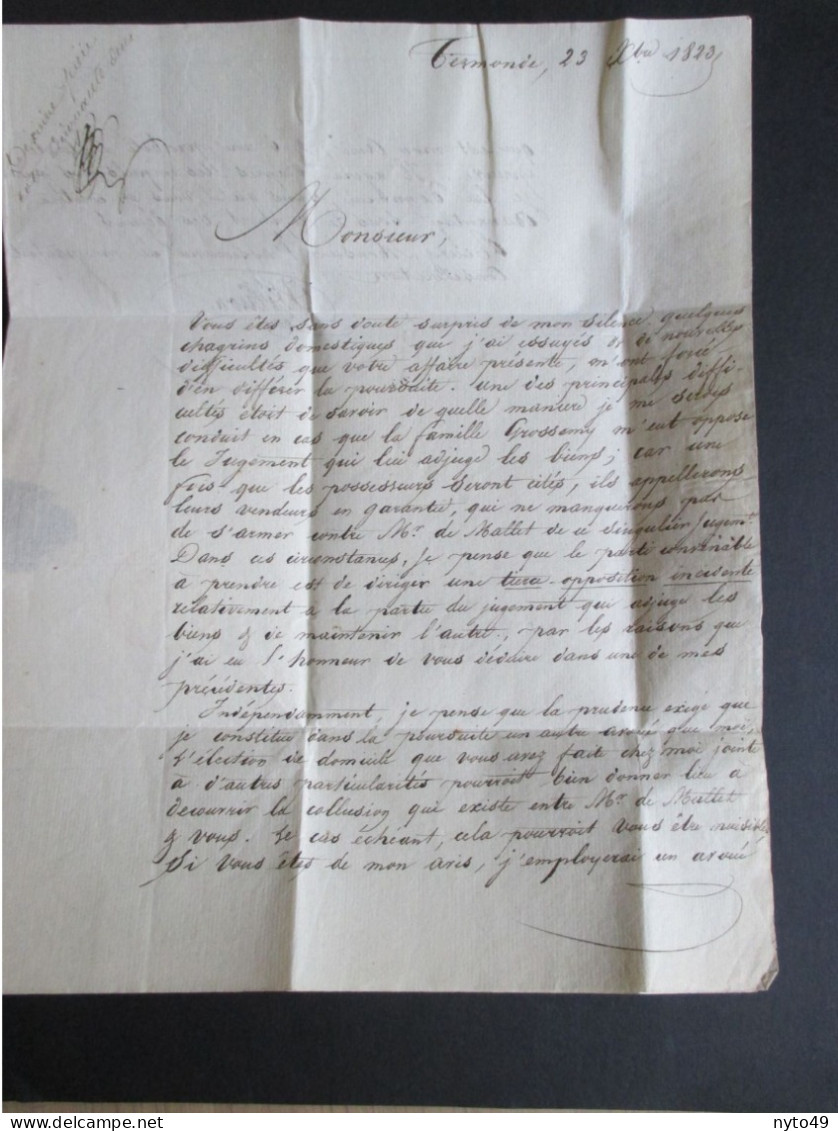 Termonde, 23 Xbre 1823
Monsieur,
Vous êtes sans doute surpris de mon silence quelques
chagrins domestiques que j'ai essuyés & de nouvelles
difficultés que votre affaire présente, m'ont forcé
d'en différer la poursuite. une des principales diffi-
cultés étoit de savoir de quelle maniere je me serois
conduit en cas que la famille Grossemy m'eut opposé
le Jugement qui lui adjuge les biens; car une
fois que les possesseurs seront cités, ils appellerons
leurs vendeurs en garantie, qui ne manquerons pas
de s'armer contre Mr. de Mallet de ce singulier Jugemt.
Dans ces circonstances, Je pense que le parti convenable
a prendre est de diriger une tierce-opposition incidente
relativement a la partie du jugement qui adjuge les
biens & de maintenir l'autre, par les raisons que
j'ai eu l'honneur de vous déduire dans une de mes
précédentes.
Indépendamment, je pense que la prudence exige que
je constitue dans la poursuite un autre avoué que moi,
L'élection de domicile que vous avez fait chez moi jointe
à d'autres particularités pourroit bien donner lieu à
decouvrir la collusion qui existe entre Mr. de Mallet
& vous. Le cas échéant, cela pourroit vous être nuisible,
Si vous êtes de mon avis, j'employerai un avoué
nyto49